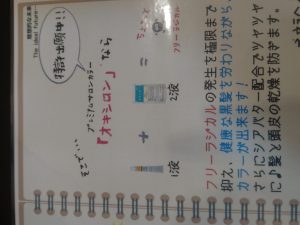 理想的な未来
The ideal future
特許出願中!!
そこで…
プレミアムサロンカラー
「オキシロン」なら
1液
+
2液
=
ちょこっと
フリーラジカル
フリーラジカルの発生を極限まで
抑え、健康な黒髪を労わりながら
カラーが出来ます!
さらにシアバター配合でツヤツヤ
に♪髪と頭皮の乾燥を防ぎます。